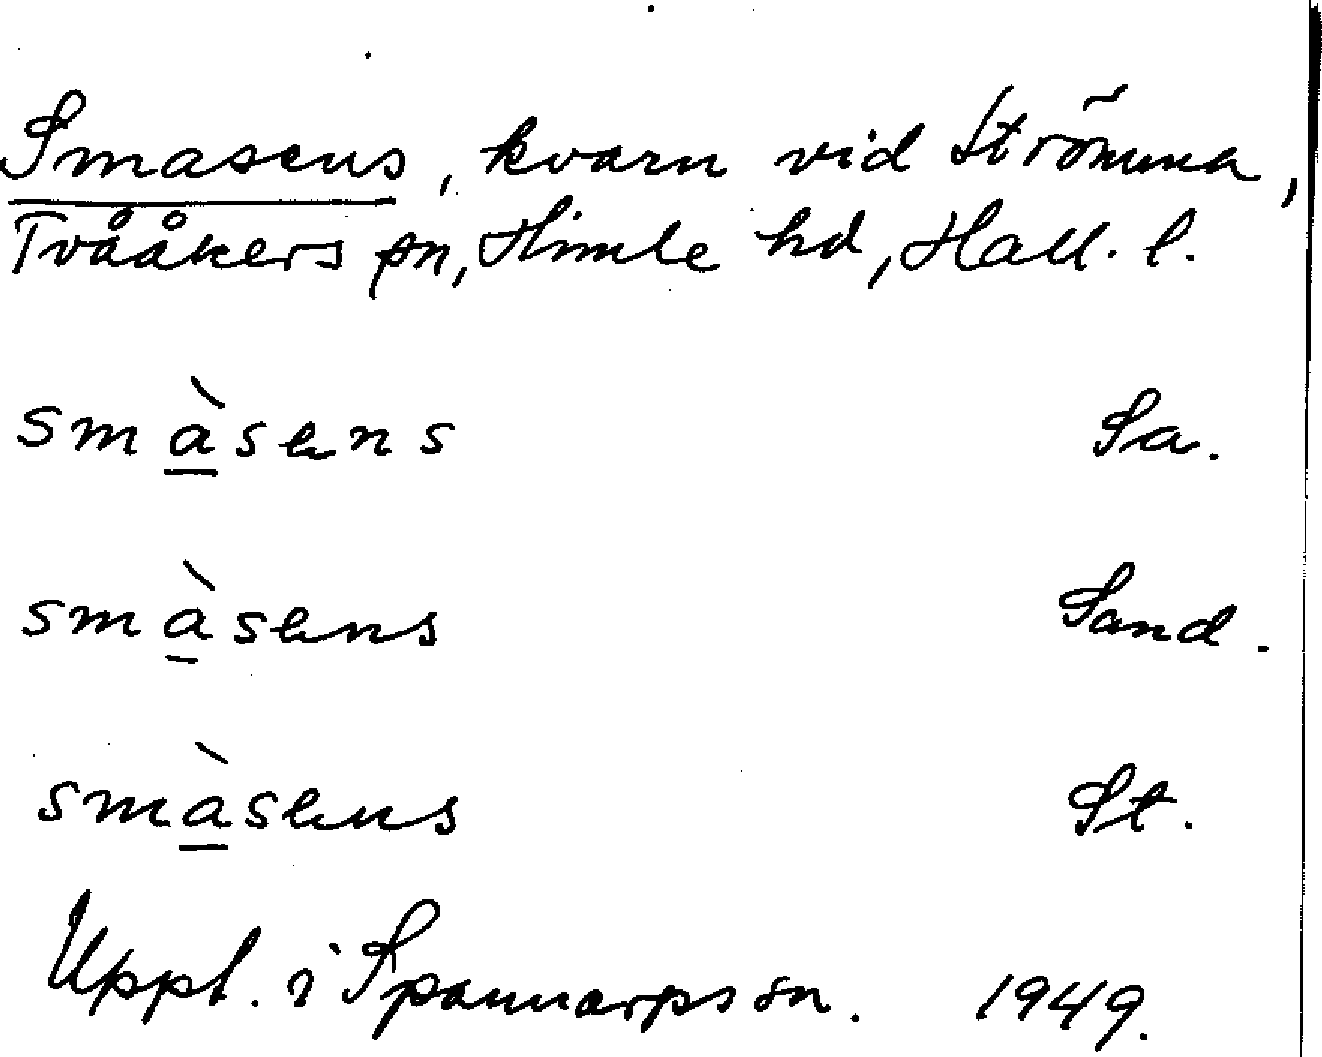 Smasens, kvarn vid Strömma,
Tvååkers sn, Himle hd, Hall. l.
smàsens Sa.
smàsens Sand.
smàsens St.
Uppt. i Spannarps sn. 1949.